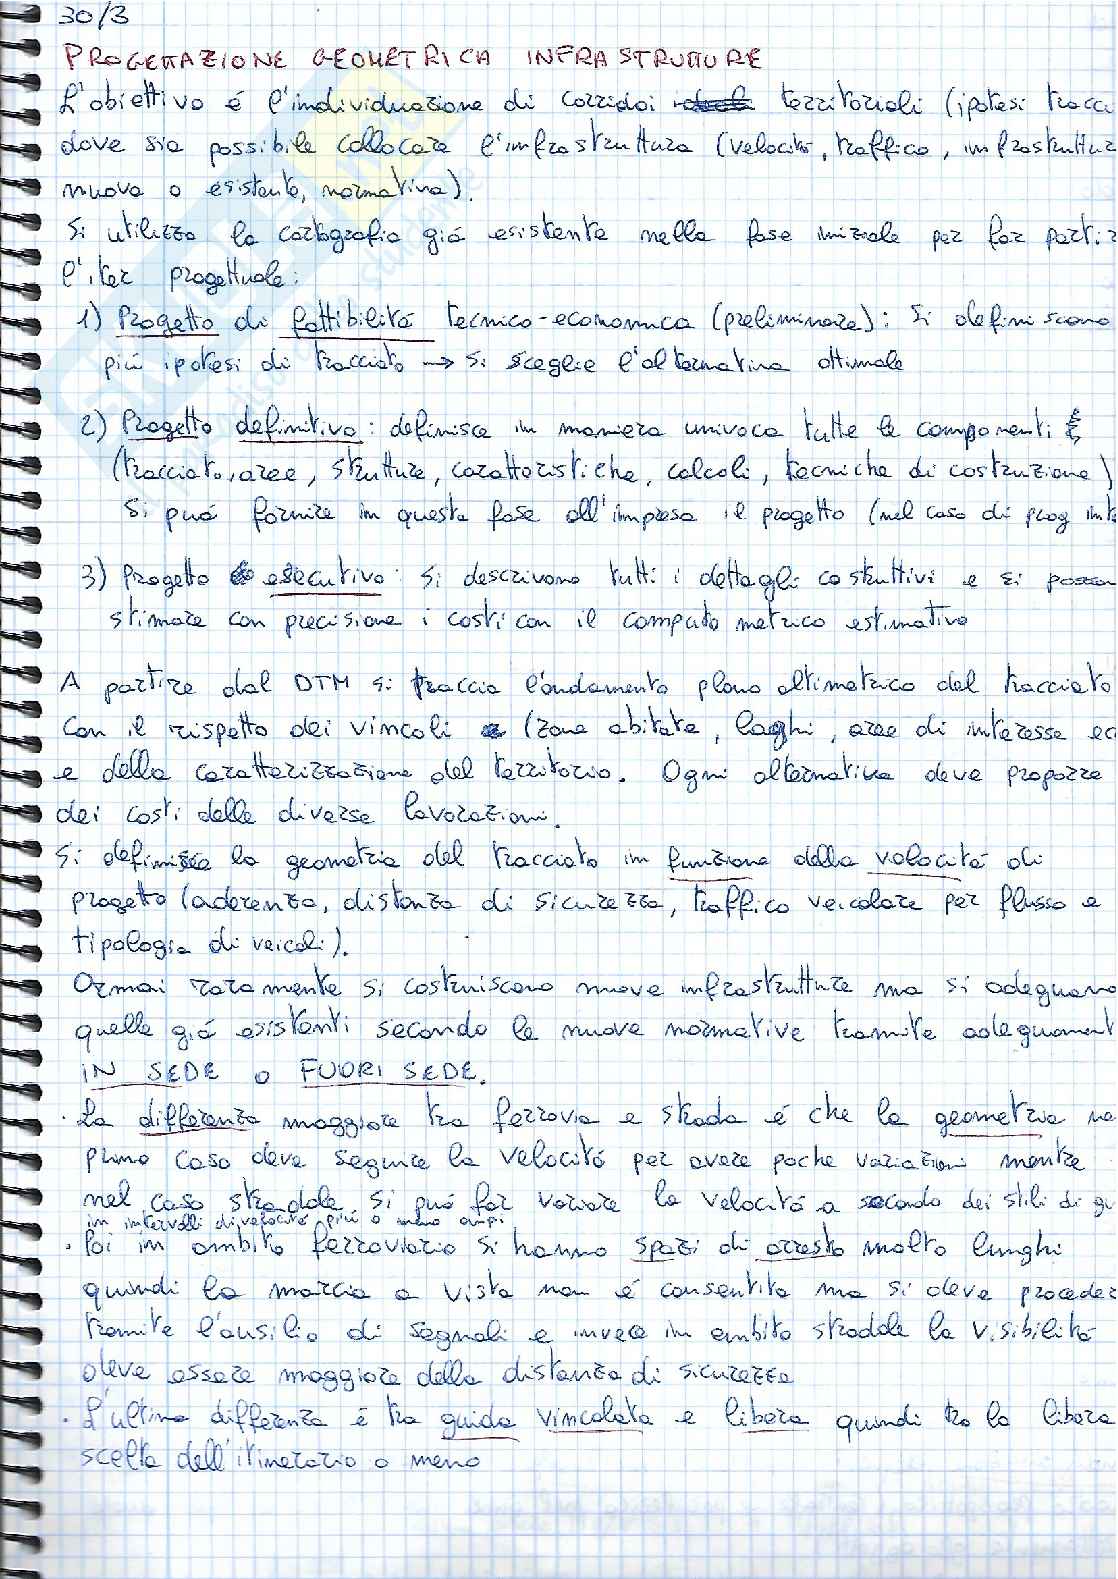 30/3
PROGETTAZIONE GEOMETRICA INFRASTRUTTURE
L'obiettivo é l'individuazione di corridoi territoriali (ipotesi tracci
dove sia possibile collocare l'infrastruttura (velocitá, traffico, infrastruttur
nuova o esistente, normativa).
Si utilizza la cartografia giá esistente nella fase iniziale per far partir
l'iter progettuale:
1) Progetto di fattibilitá tecnico-economica (preliminare): si definiscono
piú ipotesi di tracciato → si sceglie l'alternativa ottimale
2) Progetto definitivo: definisce in maniera univoca tutte le componenti
(tracciato, aree, strutture, caratteristiche, calcoli, tecniche di costruzione)
Si puó fornire in questa fase all'impresa il progetto (nel caso di prog inte
3) Progetto esecutivo: si descrivono tutti i dettagli costruttivi e si posson
stimare con precisione i costi con il computo metrico estimativo
A partire dal DTM si traccia l'andamento plano altimetrico del tracciato
con il rispetto dei vincoli (zone abitate, laghi, aree di interesse ec
e della caratterizzazione del territorio. Ogni alternativa deve proporre
dei costi delle diverse lavorazioni.
Si definisce la geometria del tracciato in funzione della velocitá di
progetto (aderenza, distanza di sicurezza, traffico veicolare per flusso e
tipologia di veicoli).
Ormai raramente si costruiscono nuove infrastrutture ma si adeguano
quelle giá esistenti secondo le nuove normative tramite adeguament
IN SEDE o FUORI SEDE.
· La differenza maggiore tra ferrovia e strada é che la geometria ne
primo caso deve seguire la velocitá per avere poche variazioni mentre
nel caso stradale si puó far variare la velocitá a secondo dei stili di gu
in intervalli di velocitá piú o meno ampi
· Poi in ambito ferroviario si hanno spazi di arresto molto lunghi
quindi la marcia a vista non é consentita ma si deve proceder
tramite l'ausilio di segnali e invece in ambito stradale la visibilitá
deve essere maggiore della distanza di sicurezza
· L'ultima differenza é tra guida vincolata e libera quindi tra la libera
scelta dell'itinerario o meno